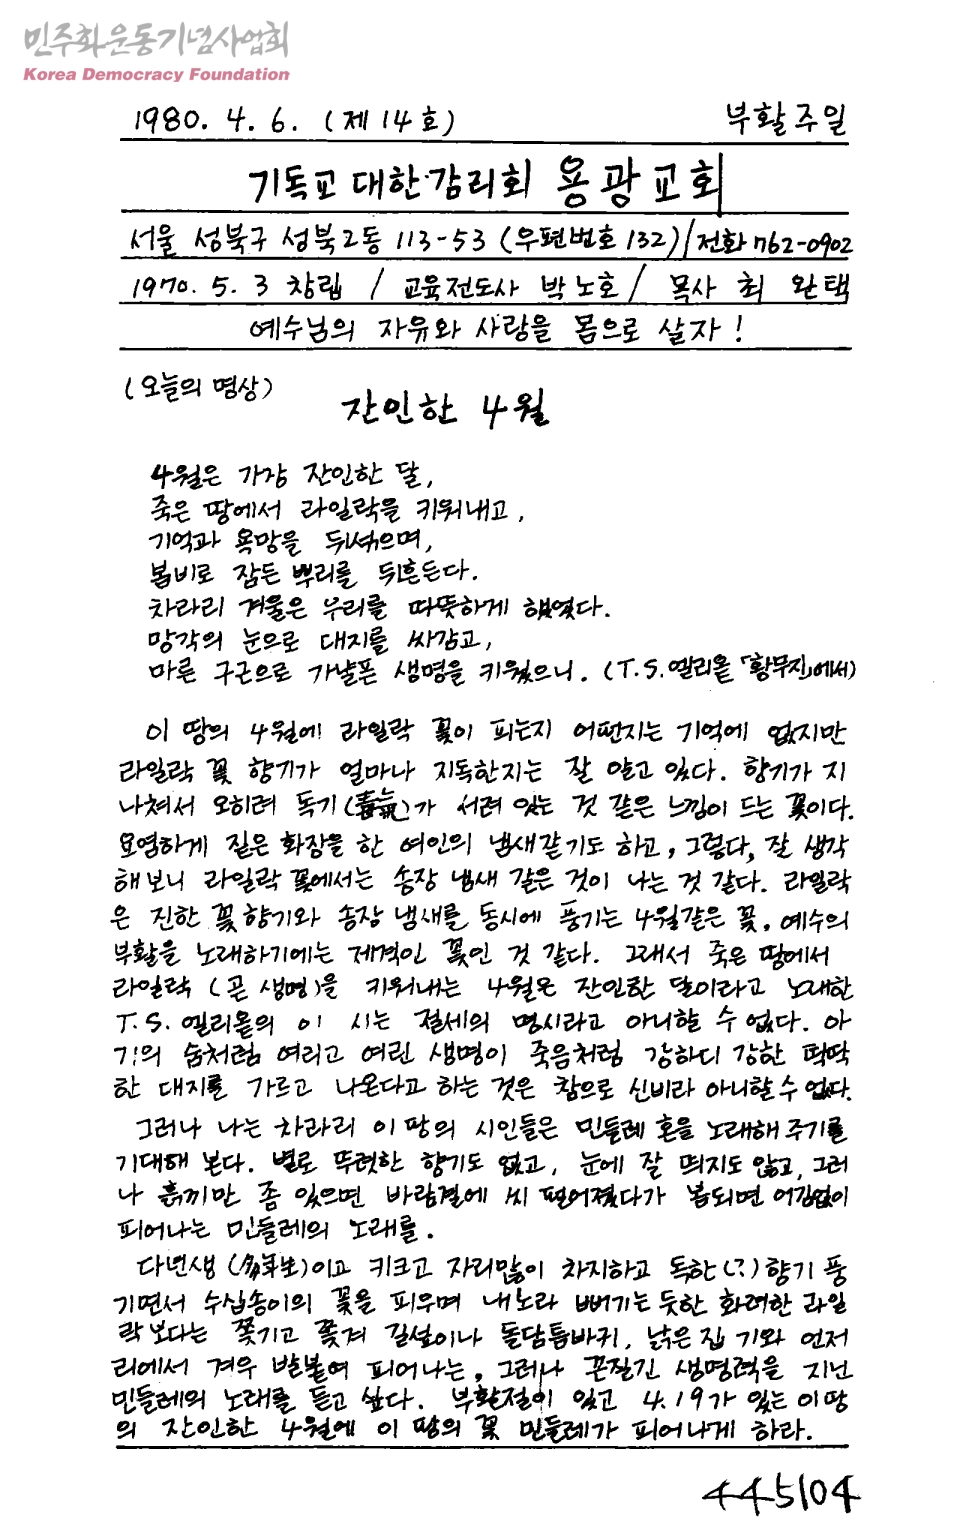 민주화운동기념사업회
Korea Democracy Foundation
1980. 4. 6. (제14호) 부활주일
기독교 대한감리회 용광교회
서울 성북구 성북2동 113-53 (우편번호 132) / 전화 762-0902
1970. 5. 3 창립 / 교육전도사 박노호 / 목사 최완택
예수님의 자유와 사랑을 몸으로 살자!
(오늘의 명상)
잔인한 4월
4월은 가장 잔인한 달,
죽은 땅에서 라일락을 키워내고,
기억과 욕망을 뒤섞으며,
봄비로 잠든 뿌리를 뒤흔든다.
차라리 겨울은 우리를 따뜻하게 했었다.
망각의 눈으로 대지를 싸감고,
마른 구근으로 가냘픈 생명을 키웠으니. (T.S.엘리옽 「황무지」에서)
이 땅의 4월에 라일락 꽃이 피는지 어쩐지는 기억에 없지만
라일락 꽃 향기가 얼마나 지독한지는 잘 알고 있다. 향기가 지
나쳐서 오히려 독기(毒氣)가 서려 있는 것 같은 느낌이 드는 꽃이다.
요염하게 짙은 화장을 한 여인의 냄새같기도 하고, 그렇다, 잘 생각
해보니 라일락 꽃에서는 송장 냄새 같은 것이 나는 것 같다. 라일락
은 진한 꽃향기와 송장 냄새를 동시에 풍기는 4월같은 꽃. 예수의
부활을 노래하기에는 제격인 꽃인 것 같다. 그래서 죽은 땅에서
라일락 (곧 생명)을 키워내는 4월은 잔인한 달이라고 노래한
T.S. 엘리옽의 이 시는 절세의 명시라고 아니할 수 없다. 아
기의 숨처럼 여리고 여린 생명이 죽음처럼 강하디 강한 딱딱
한 대지를 가르고 나온다고 하는 것은 참으로 신비라 아니할 수 없다.
그러나 나는 차라리 이 땅의 시인들은 민들레 혼을 노래해 주기를
기대해 본다. 별로 뚜렷한 향기도 없고, 눈에 잘 띄지도 않고, 그러
나 흙끼만 좀 있으면 바람결에 씨 떨어졌다가 봄되면 어김없이
피어나는 민들레의 노래를.
다년생(多年生)이고 키크고 자리많이 차지하고 독한(?) 향기 풍
기면서 수십송이의 꽃을 피우며 내노라 뻐기는 듯한 화려한 라일
락보다는 쫓기고 쫓겨 길섶이나 돌담틈바귀, 낡은 집 기와 언저
리에서 겨우 발붙여 피어나는, 그러나 끈질긴 생명력을 지닌
민들레의 노래를 듣고 싶다. 부활절이 있고 4.19가 있는 이 땅
의 잔인한 4월에 이 땅의 꽃 민들레가 피어나게 하라.
445104